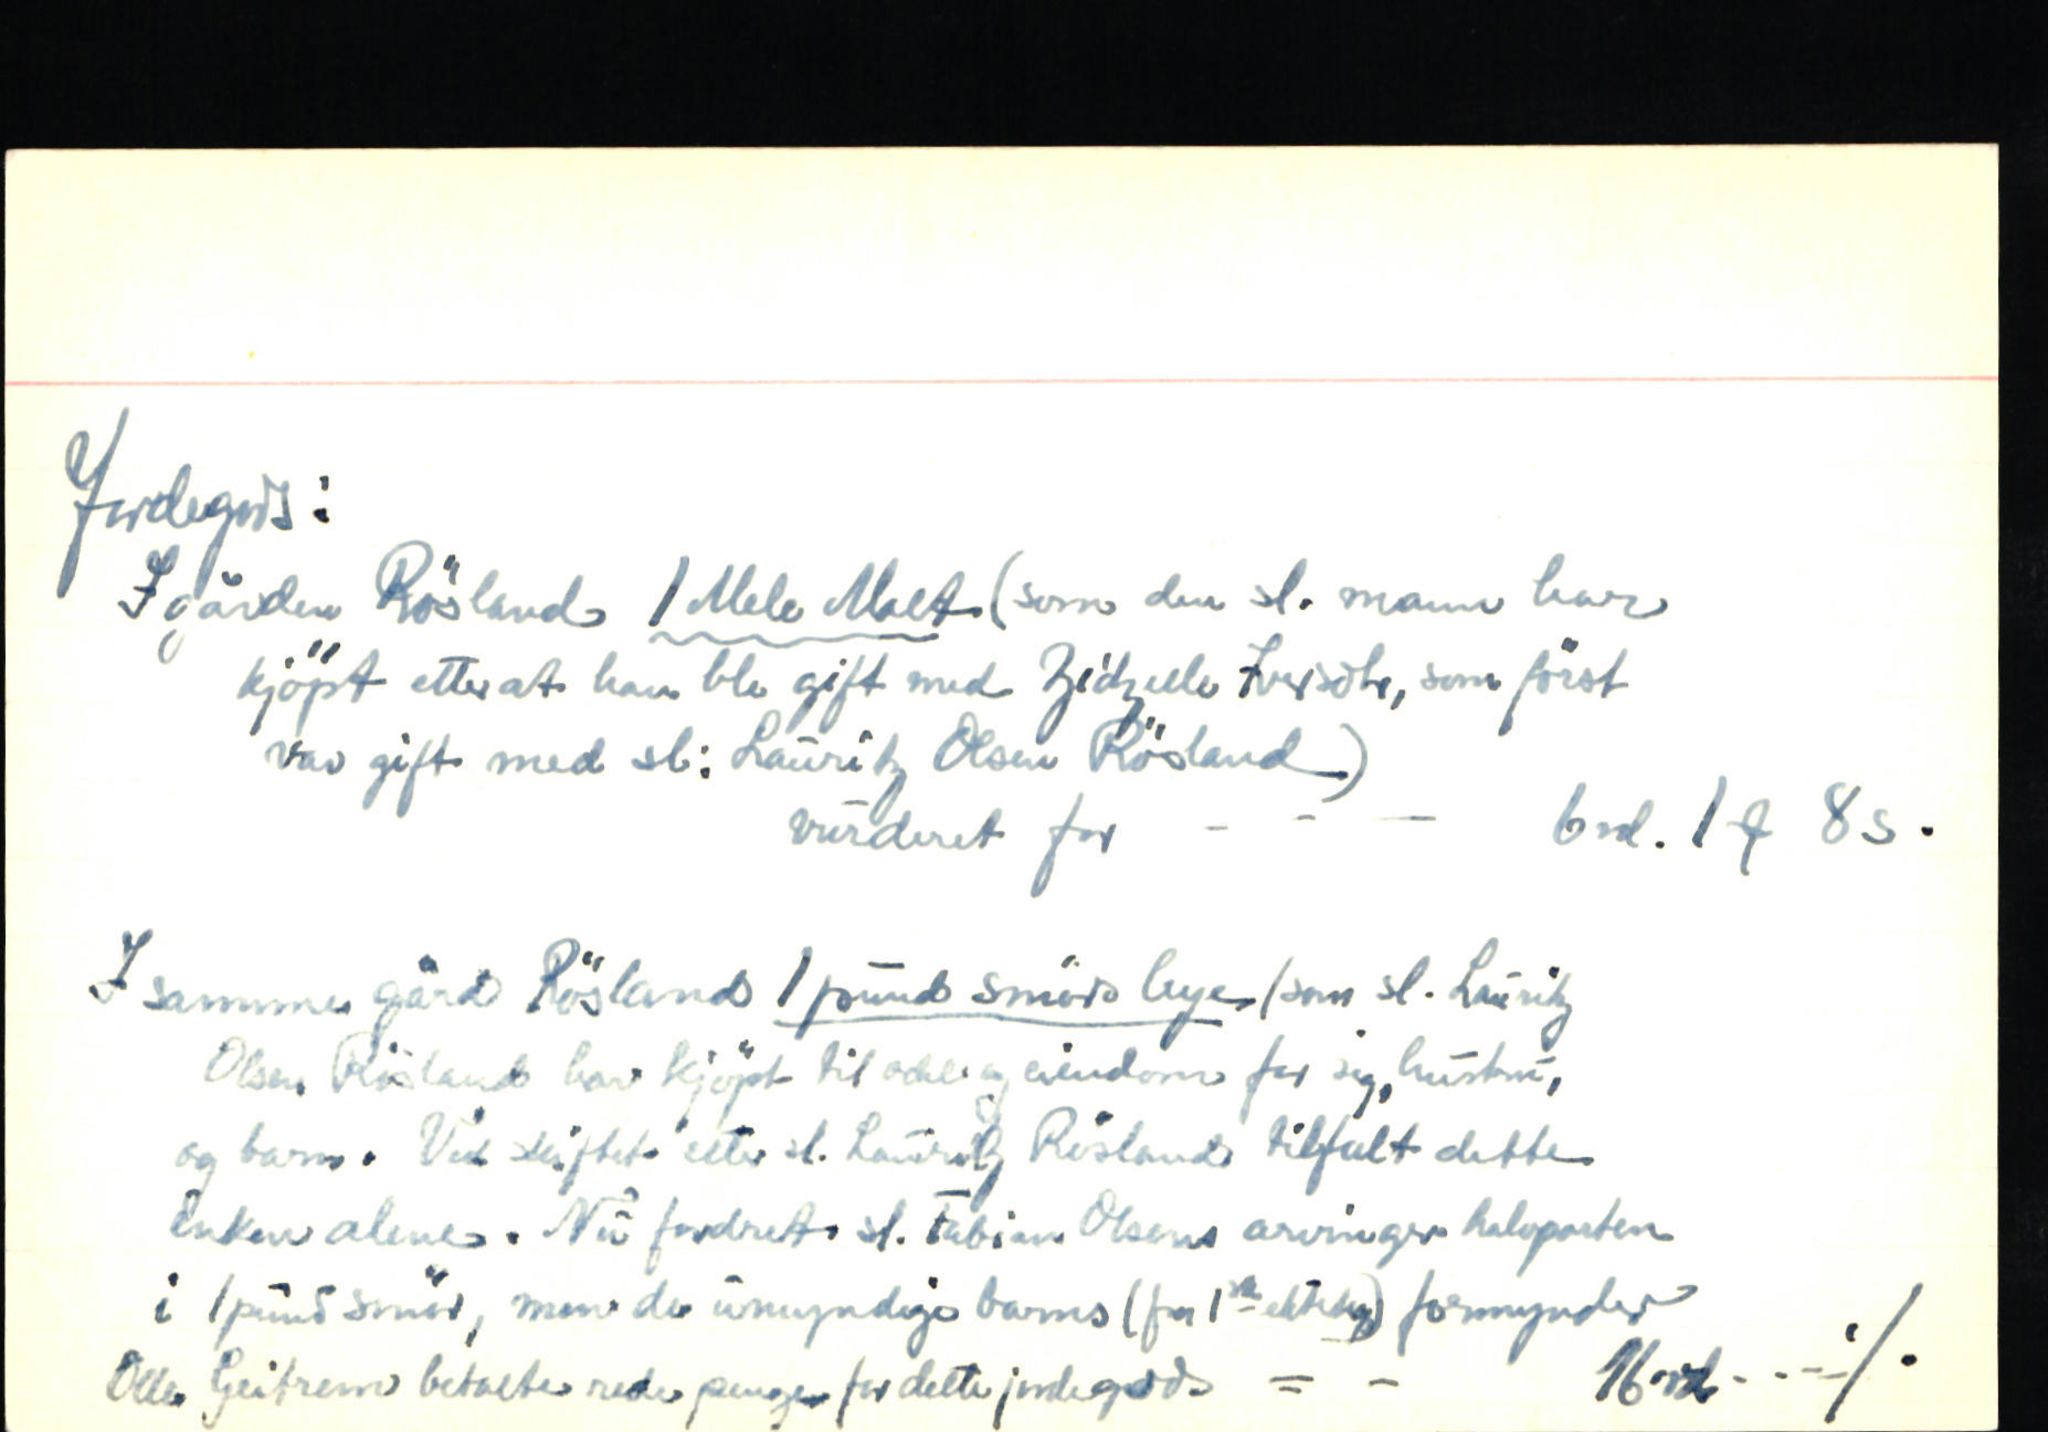 Jordegods:
I gården Rösland 1 Mele Malt (som den sl. mann har
kjöpt etter at han ble gift med Zidzelle Iversdtr, som först
var gift med sl: Lauritz Olsen Rösland)
vurderet for - - - 6 rd. 1 ƒ 8 s.
I samme gård Rösland 1 pund smörs leye (som sl. Lauritz
Olsen Rösland har kjöpt til odel og eiendom for sig, hustru,
og barn. Ved skiftet etter sl. Lauritz Rösland tilfalt dette
enken alene. Nu fordret sl. Fabian Olsens arvinger halvparten
i 1 pund smör, men de umyndige barns (fra 1ste ekteskap) formynder
Olle Geitrem betalte rede penge for dette jordegods = - 16 rd - - - -